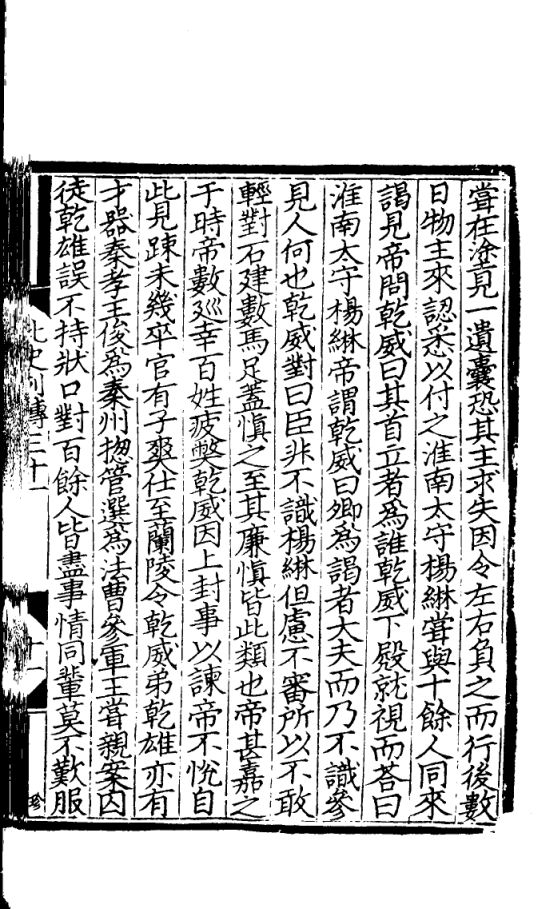 嘗在塗見一遺囊恐其主求失因令左右負之而行後數
日物主來認悉以付之淮南太守楊綝嘗與十餘人同來
謁見帝問乾威曰其首立者爲誰乾威下殿就視而荅曰
淮南太守楊綝帝謂乾威曰卿爲謁者大夫而乃不識參
見人何也乾威對曰臣非不識楊綝但慮不審所以不敢
輕對石建數馬足蓋慎之至其廉慎皆此類也帝甚嘉之
于時帝數巡幸百姓疲獘乾威因上封事以諫帝不悅自
此見踈未幾卒官有子爽仕至蘭陵令乾威弟乾雄亦有
才器秦孝王俊爲秦州揔管選爲法曹參軍王嘗親案囚
徒乾雄誤不持狀口對百餘人皆盡事情同輩莫不歎服
北史列傳三十一
十一
珍